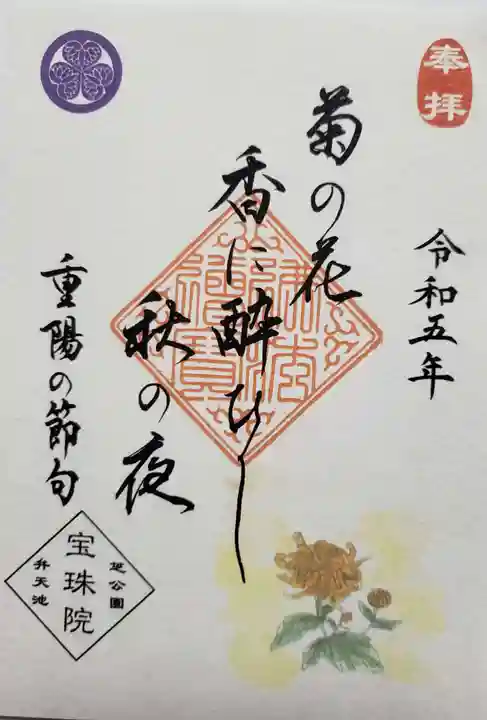 奉拝
令和五年
菊の花
香に酔ひし
秋の夜
重陽の節句
芝公園
宝珠院
弁天池